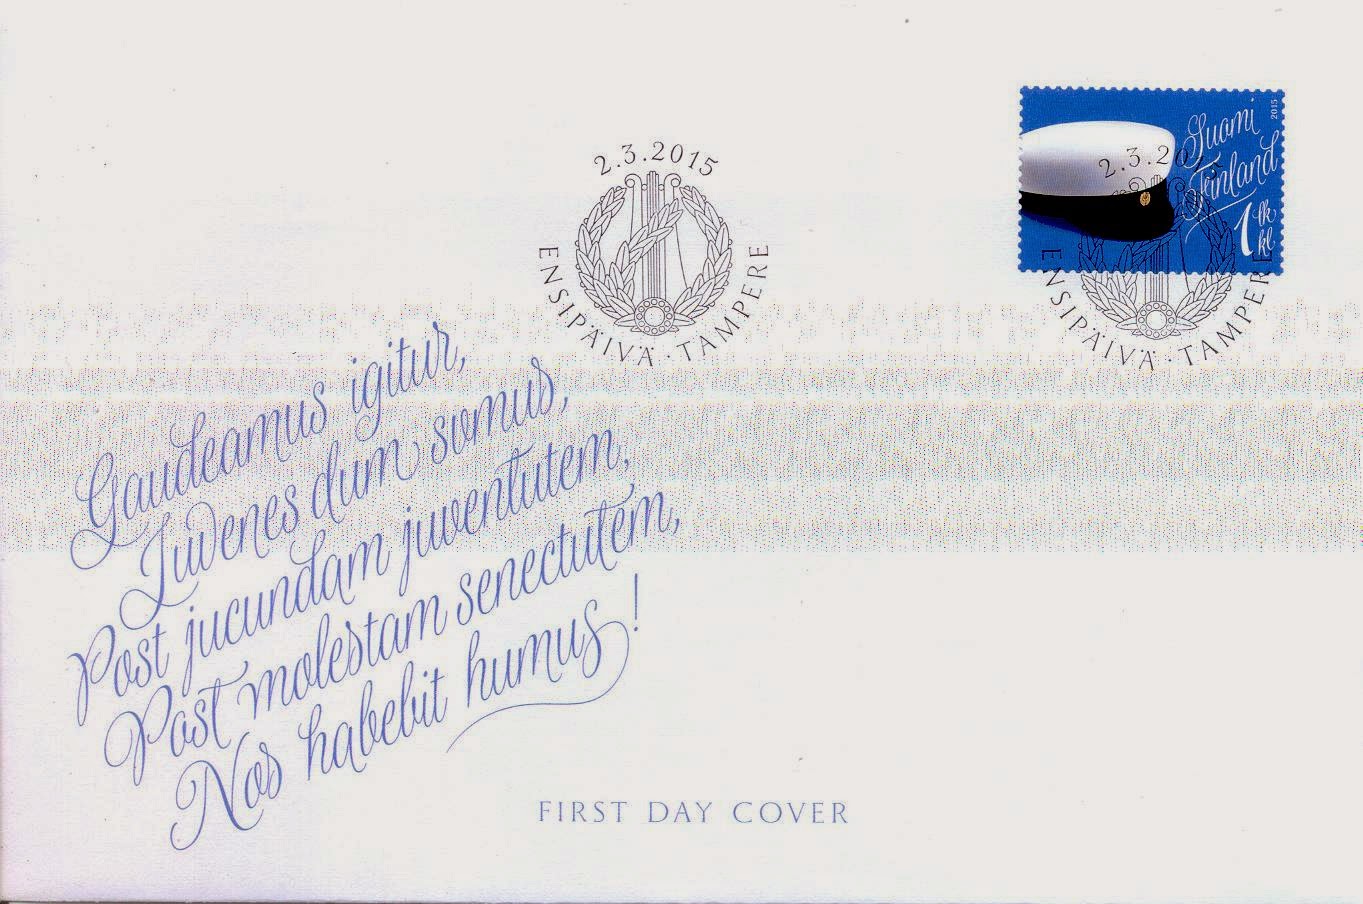 2.3.2015
ENSIPÄIVÄ · TAMPERE
Suomi
Finland
2015
1 lk
kl
2.3.2015
ENSIPÄIVÄ · TAMPERE
Gaudeamus igitur,
Juvenes dum sumus,
Post jucundam juventutem,
Post molestam senectutem,
Nos habebit humus!
FIRST DAY COVER